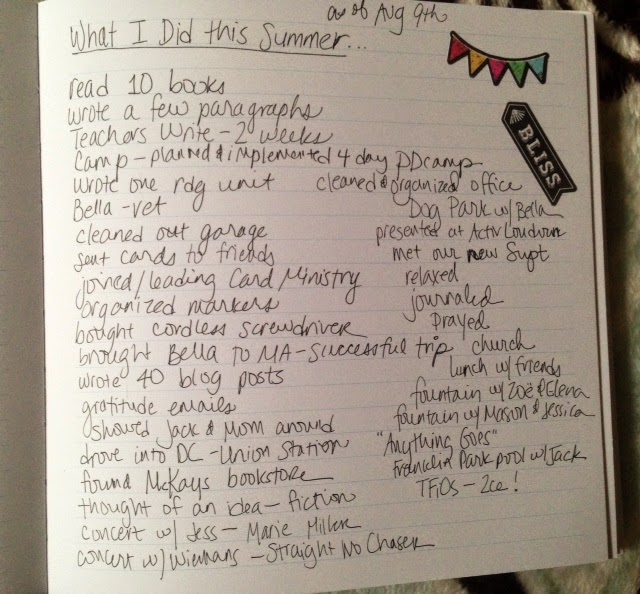 as of Aug 9th
What I Did this Summer...
read 10 books
wrote a few paragraphs
Teachers Write - 2 weeks
Camp - planned & implemented 4 day PD camp
wrote one rdg unit
Bella - vet
cleaned out garage
sent cards to friends
joined/leading Card Ministry
organized markers
bought cordless screwdriver
brought Bella to MA - successful trip
wrote 40 blog posts
gratitude emails
showed Jack & Mom around
drove into DC - Union Station
found McKays bookstore
thought of an idea - fiction
concert w/ Jess - Marie Miller
concert w/ - Straight No Chaser
cleaned & organized office
Dog Park w/ Bella
presented at Activ Loudoun
met our new Supt
relaxed
journaled
prayed
church
lunch w/ friends
fountain w/ Zoë & Elena
fountain w/ Mason & Jessica
"Anything Goes"
Franklin Park pool w/ Jack
TFiOs - 2ce!
BLISS